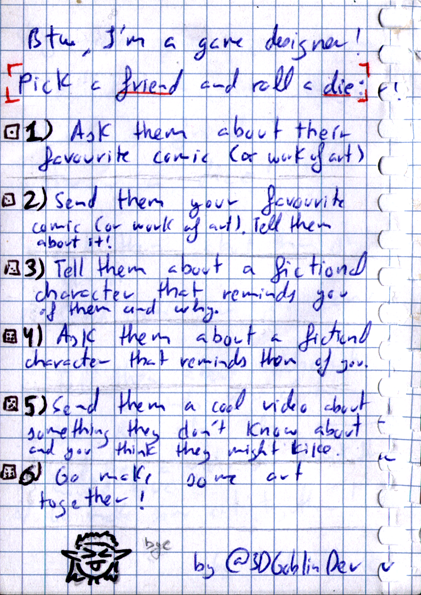 Btw, I'm a game designer!
Pick a friend and roll a die:
1) Ask them about their
favourite comic (or work of art)
2) Send them your favourite
comic (or work of art). Tell them
about it!
3) Tell them about a fictional
character that reminds you
of them and why.
4) Ask them about a fictional
character that reminds them of you.
5) Send them a cool video about
something they don't know about
and you think they might like.
6) Go make some art
together!
bye
by @3DGoblinDev